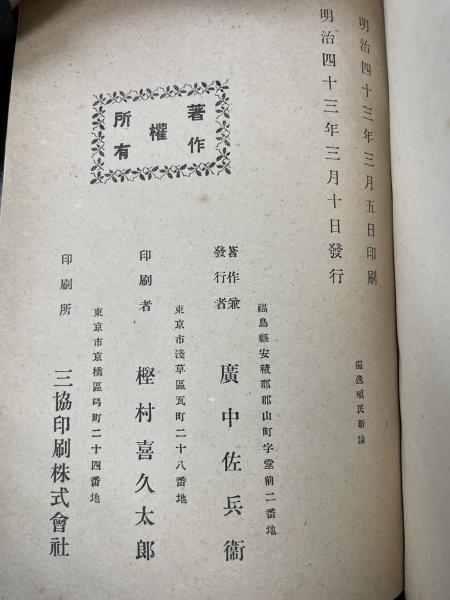 明治四十三年三月五日印刷
明治四十三年三月十日發行
著作
權
所有
福島縣安積郡郡山町字堂前二番地
著作兼
發行者
廣中佐兵衞
東京市淺草區瓦町二十八番地
印刷者
樫村喜久太郎
東京市京橋區弓町二十四番地
印刷所
三協印刷株式會社